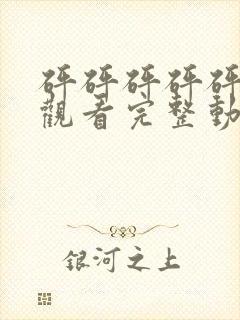 砰砰砰砰砰
觀看完整動
銀河之上